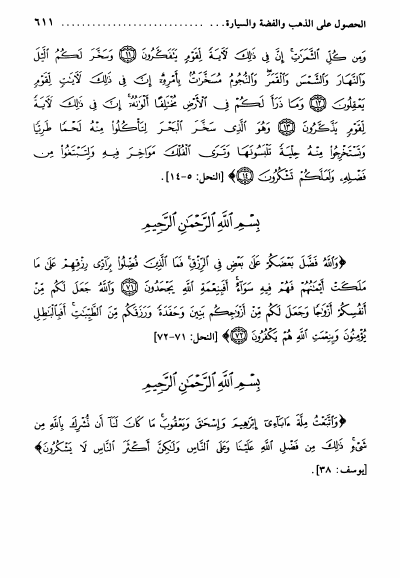 الحصول على الذهب والفضة والسيارة. .......................... ٦١١
وَمِن كُلِّ الثَّمَرَاتِ إِنَّ فِي ذَٰلِكَ لَآيَةً لِّقَوْمٍ يَتَفَكَّرُونَ ﴿١١﴾ وَسَخَّرَ لَكُمُ الَّيْلَ
وَالنَّهَارَ وَالشَّمْسَ وَالْقَمَرَ وَالنُّجُومُ مُسَخَّرَاتٌ بِأَمْرِهِ إِنَّ فِي ذَٰلِكَ لَآيَاتٍ لِّقَوْمٍ
يَعْقِلُونَ ﴿١٢﴾ وَمَا ذَرَأَ لَكُمْ فِي الْأَرْضِ مُخْتَلِفًا أَلْوَانُهُ إِنَّ فِي ذَٰلِكَ لَآيَةً
لِّقَوْمٍ يَذَّكَّرُونَ ﴿١٣﴾ وَهُوَ الَّذِي سَخَّرَ الْبَحْرَ لِتَأْكُلُوا مِنْهُ لَحْمًا طَرِيًّا
وَتَسْتَخْرِجُوا مِنْهُ حِلْيَةً تَلْبَسُونَهَا وَتَرَى الْفُلْكَ مَوَاخِرَ فِيهِ وَلِتَبْتَغُوا مِن
فَضْلِهِ وَلَعَلَّكُمْ تَشْكُرُونَ ﴿١٤﴾﴾ [النحل: ٥-١٤].
بِسْمِ اللَّهِ الرَّحْمَٰنِ الرَّحِيمِ
﴿وَاللَّهُ فَضَّلَ بَعْضَكُمْ عَلَىٰ بَعْضٍ فِي الرِّزْقِ فَمَا الَّذِينَ فُضِّلُوا بِرَادِّي رِزْقِهِمْ عَلَىٰ مَا
مَلَكَتْ أَيْمَانُهُمْ فَهُمْ فِيهِ سَوَاءٌ أَفَبِنِعْمَةِ اللَّهِ يَجْحَدُونَ ﴿٧١﴾ وَاللَّهُ جَعَلَ لَكُم مِّنْ
أَنفُسِكُمْ أَزْوَاجًا وَجَعَلَ لَكُم مِّنْ أَزْوَاجِكُم بَنِينَ وَحَفَدَةً وَرَزَقَكُم مِّنَ الطَّيِّبَاتِ أَفَبِالْبَاطِلِ
يُؤْمِنُونَ وَبِنِعْمَتِ اللَّهِ هُمْ يَكْفُرُونَ ﴿٧٢﴾﴾ [النحل: ٧١-٧٢]
بِسْمِ اللَّهِ الرَّحْمَٰنِ الرَّحِيمِ
﴿وَاتَّبَعْتُ مِلَّةَ ءَابَاءِي إِبْرَاهِيمَ وَإِسْحَاقَ وَيَعْقُوبَ مَا كَانَ لَنَا أَن نُّشْرِكَ بِاللَّهِ مِن
شَيْءٍ ذَٰلِكَ مِن فَضْلِ اللَّهِ عَلَيْنَا وَعَلَى النَّاسِ وَلَٰكِنَّ أَكْثَرَ النَّاسِ لَا يَشْكُرُونَ﴾
[يوسف: ٣٨].